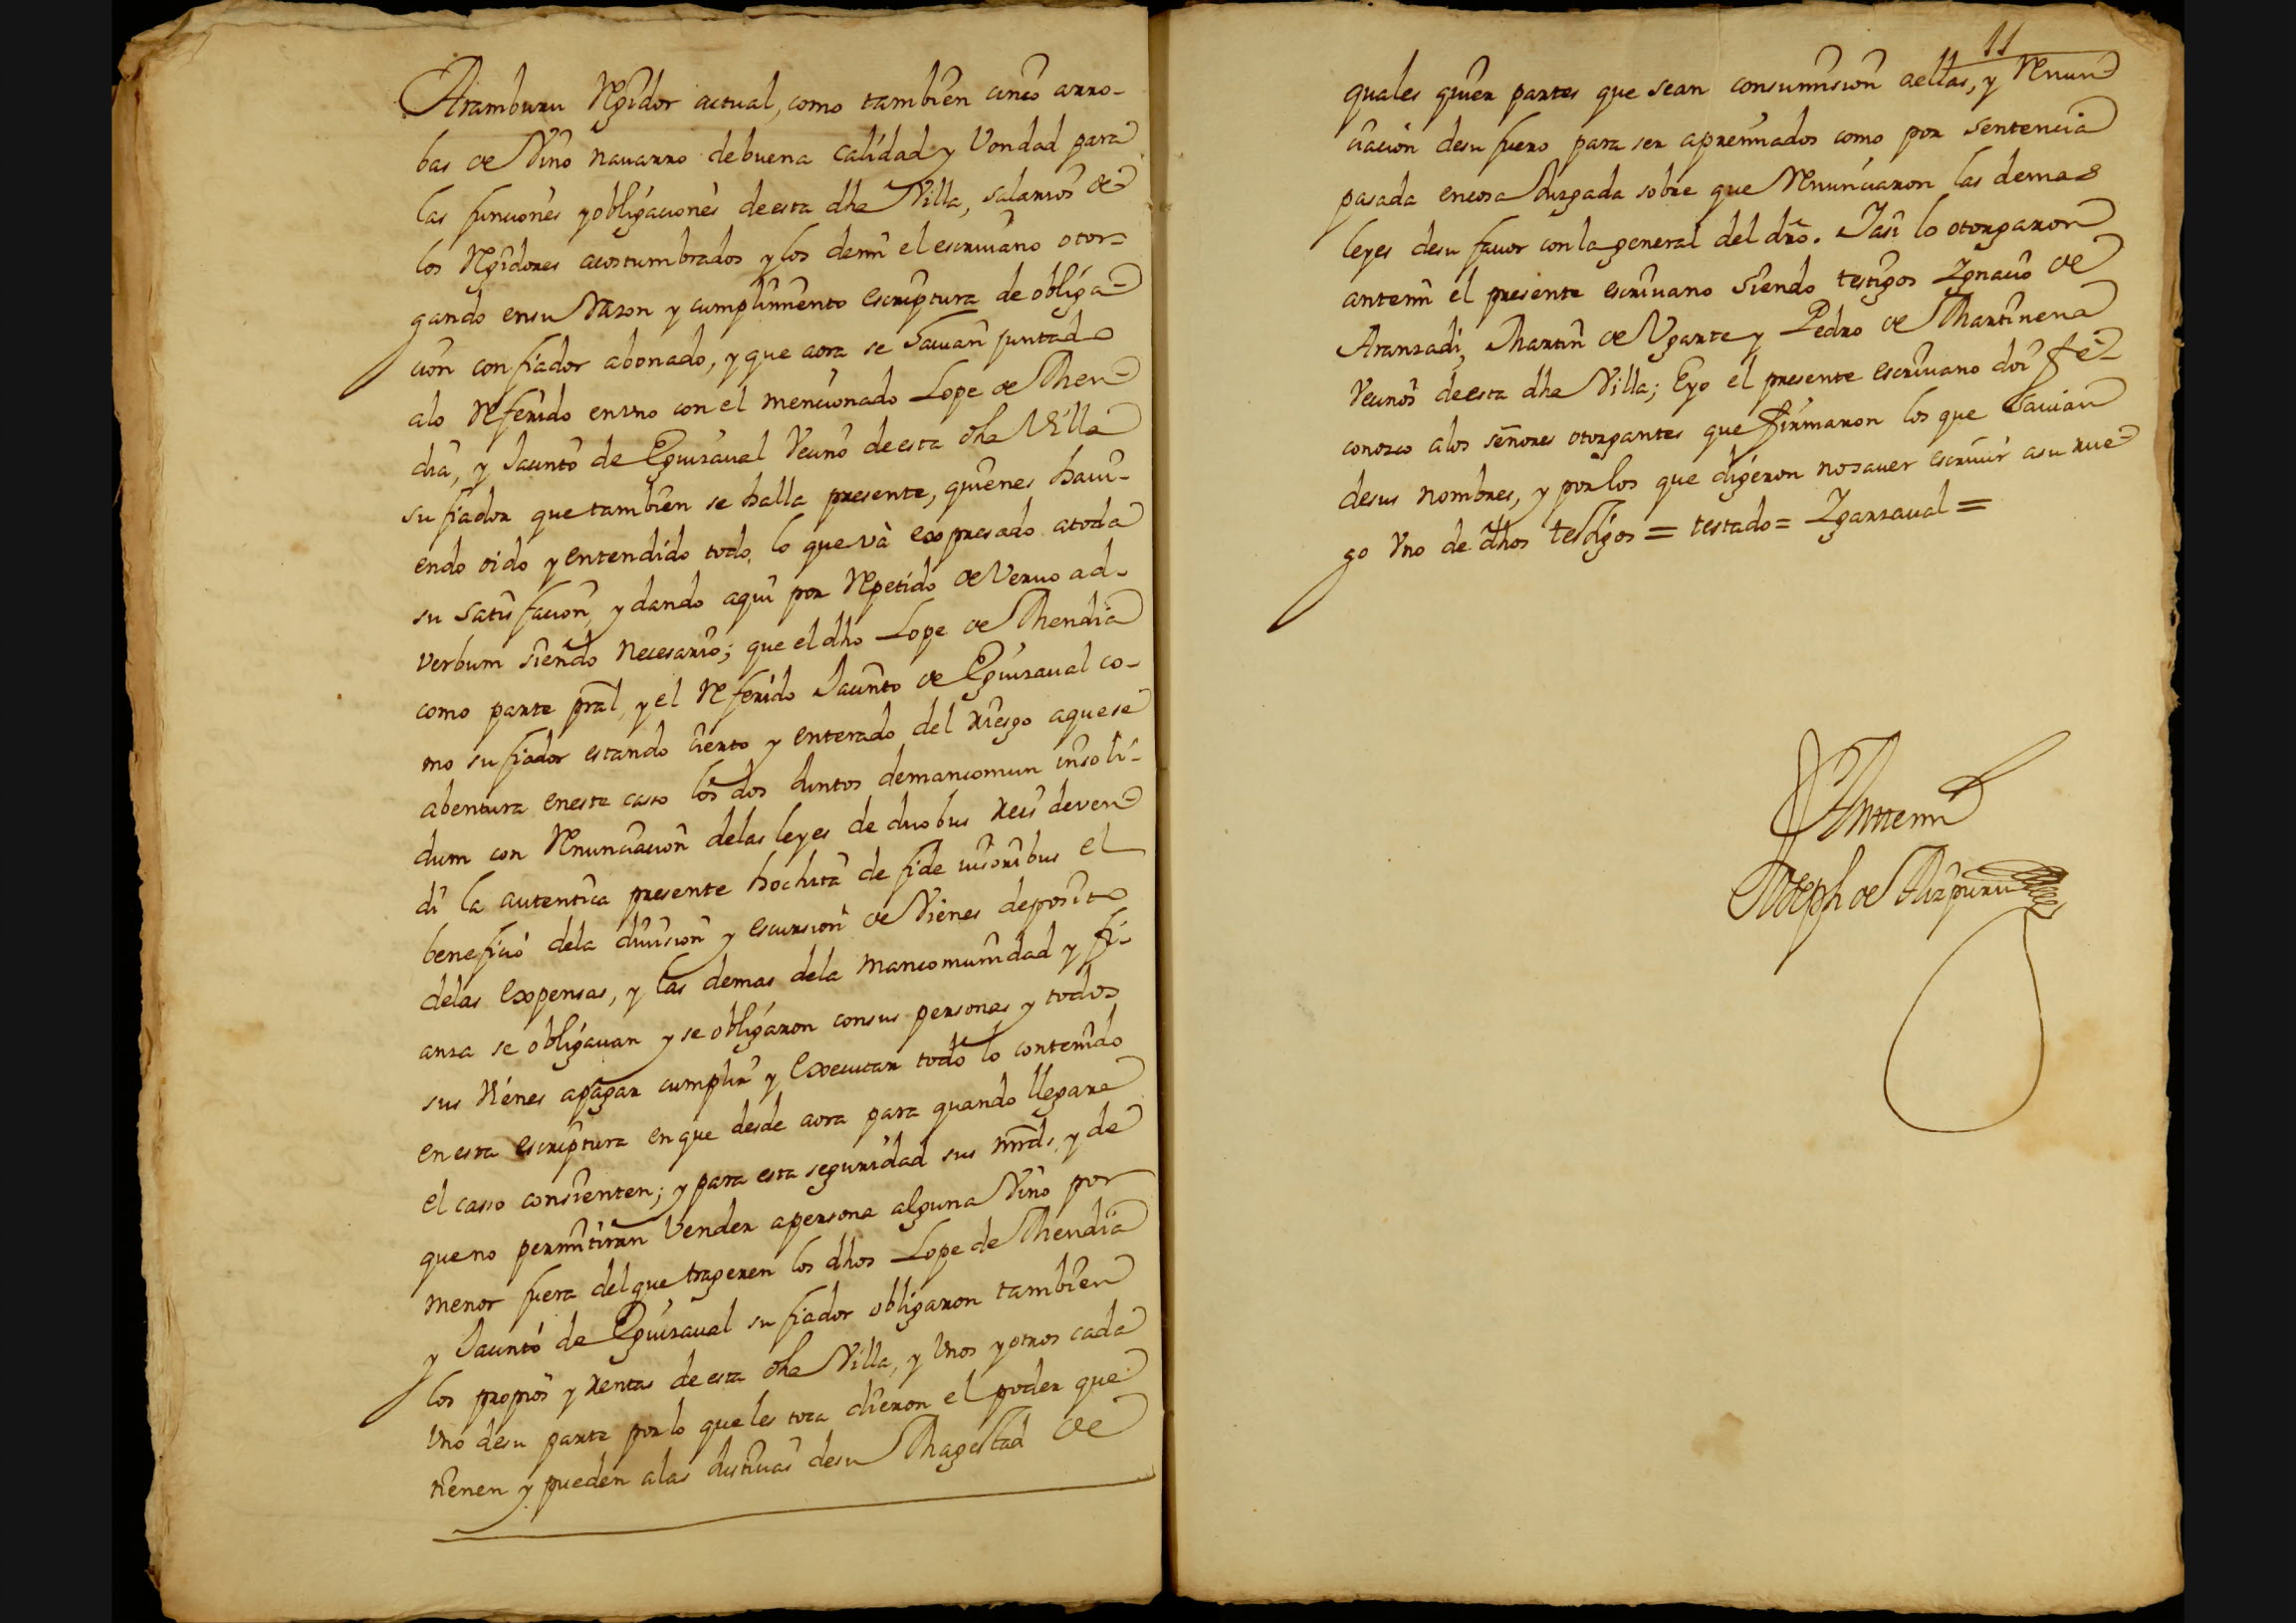 Aramburu Regidor actual, como también cinco arro-
bas de Vino nauarro debuena calidad y Vondad para
las funciones y obligaciones deesta dha Villa, salarios de
los Regidores acostumbrados y los demi el escriuano otor-
gando ensu Razon y cumplimiento escriptura de obliga-
cion con fiador abonado, y que aora se hauian juntado
alo Referido envno con el mencionado Lope de Men-
dia, y Jacinto de Eguizaual Vecino deesta dha Villa
su fiador que tambien se halla presente, quienes haui-
endo oido y entendido todo lo que và expresado atoda
su satisfacion, y dando aqui por Repetido de Veruo ad-
verbum siendo necesario; que el dho Lope de Mendia
como parte pral, y el Referido Jacinto de Eguizaual co-
mo su fiador estando cierto y enterado del riesgo aquese
abentura eneste caso los dos Juntos demancomun insoli-
dum con Renunciacion delas leyes de duobus reis deven
di la autentica presente hochita de fide iusoribus el
beneficio dela diuision y escursion de Vienes deposito
delas expensas, y las demas dela mancomunidad y fi-
anza se obligauan y se obligaron consus personas y todos
sus Vienes apagar cumplir y executar todo lo contenido
enesta escriptura enque desde aora para quando llegare
el casso consienten; y para esta seguridad sus mrds. y de
queno permitiran Vender apersona alguna Vino por
menor fuera delque trageren los dhos Lope de Mendia
y Jacinto de Eguizaual su fiador obligaron tambien
los propios y rentas de esta dha Villa, y Vnos y otros cada
Vno desu parte porlo que les toca dieron el poder que
tienen y pueden alas Justicias desu Magestad de
11
quales quier partes que sean consumision aellas, y Renun-
ciacion desu fuero para ser apremiados como por sentencia
pasada encosa Juzgada sobre que Renunciaron las demas
leyes desu fauor conla general del dro. Jasi lo otorgaron
antemi el presente escriuano siendo testigos Ygnacio de
Aranzadi, Martin de Vgarte y Pedro de Martinena
Vecinos deesta dha Villa; Eyo el presente escriuano doi fe
conozco alos señores otorgantes que firmaron los que sauian
desus nombres, y porlos que digeron nosauer escriuir asu rue-
go Vno de dhos testigos = testado = Ygarzaual =
Anttemi
Joseph de Aizpuru